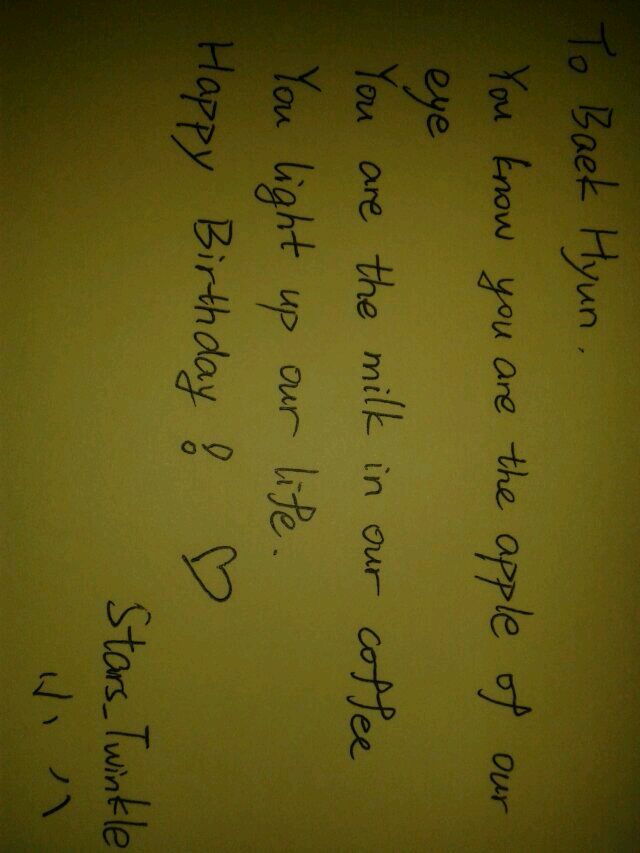 To Baek Hyun,
You know you are the apple of our
eye
You are the milk in our coffee
You light up our life.
Happy Birthday! ♡
Stars_Twinkle